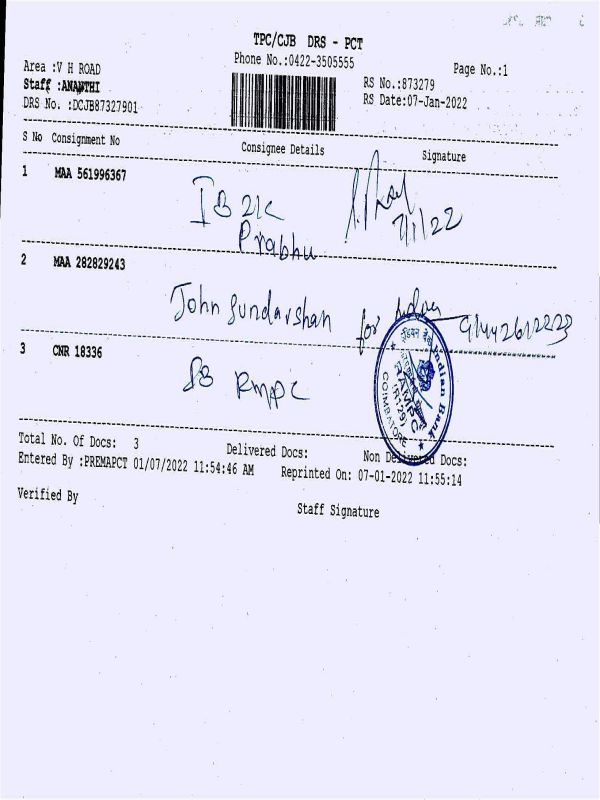 TPC/CJB DRS - PCT
Area :V H ROAD
Phone No.:0422-3505555
Page No.:1
Staff :ANANTHI
RS No.:873279
DRS No. :DCJB87327901
RS Date:07-Jan-2022
S No Consignment No Consignee Details Signature
1 MAA 561996367
Prabhu
7/1/22
2 MAA 282829243
John Sundarshan for
3 CNR 18336
इंडियन बैंक Indian Bank
RAMPC
COIMBATORE
Total No. Of Docs: 3 Delivered Docs: Non Delivered Docs:
Entered By :PREMAPCT 01/07/2022 11:54:46 AM Reprinted On: 07-01-2022 11:55:14
Verified By Staff Signature